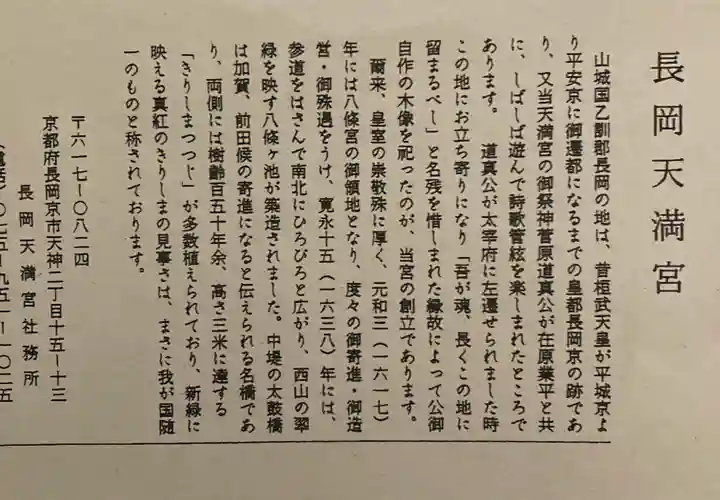 長岡天満宮
山城国乙訓郡長岡の地は、昔桓武天皇が平城京よ
り平安京に御遷都になるまでの皇都長岡京の跡であ
り、又当天満宮の御祭神菅原道真公が在原業平と共
に、しばしば遊んで詩歌管絃を楽しまれたところで
あります。　道真公が太宰府に左遷せられました時
この地にお立ち寄りになり「吾が魂、長くこの地に
留まるべし」と名残を惜しまれた縁故によって公御
自作の木像を祀ったのが、当宮の創立であります。
爾来、皇室の崇敬殊に厚く、元和三（一六一七）
年には八條宮の御領地となり、度々の御寄進・御造
営・御殊遇をうけ、寛永十五（一六三八）年には、
参道をはさんで南北にひろびろと広がり、西山の翠
緑を映す八條ヶ池が築造されました。中堤の太鼓橋
は加賀、前田候の寄進になると伝えられる名橋であ
り、両側には樹齢百五十年余、高さ三米に達する
「きりしまつつじ」が多数植えられており、新緑に
映える真紅のきりしまの見事さは、まさに我が国随
一のものと称されております。
〒六一七ー〇八二四
京都府長岡京市天神二丁目十五ー十三
長岡天満宮社務所
（電話）〇七五ー九五一ー一〇二五